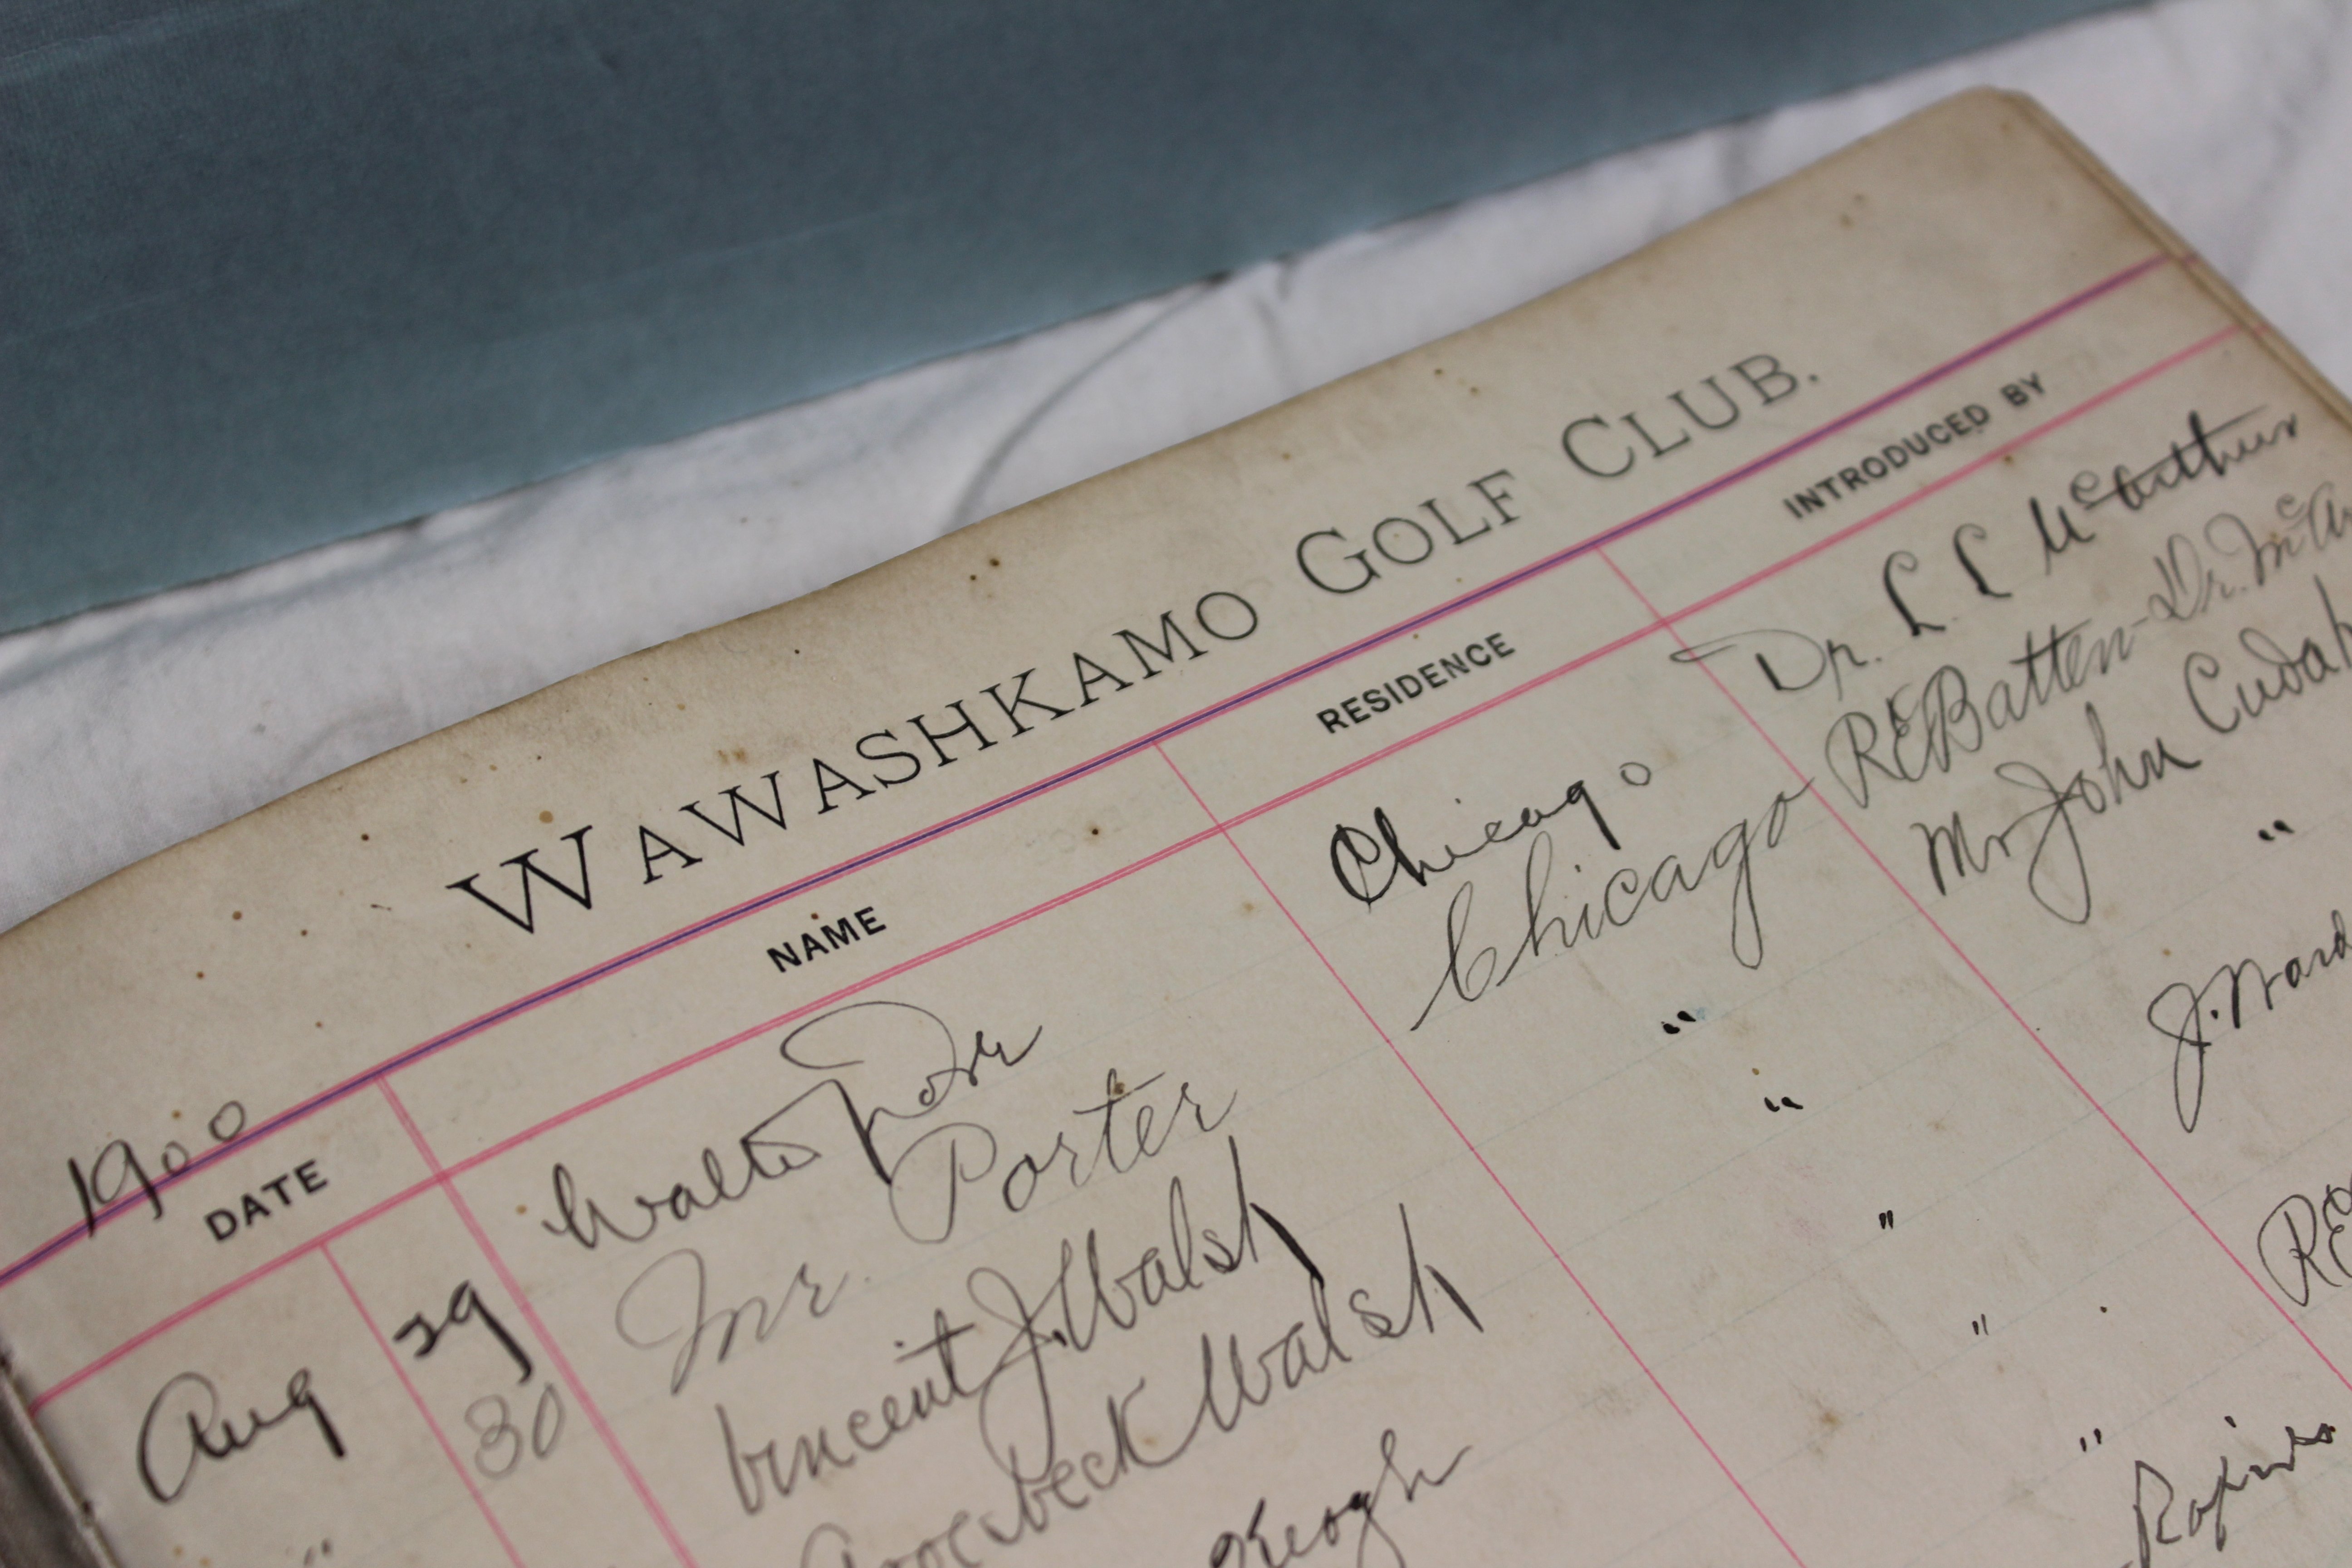 WAWASHKAMO GOLF CLUB.
1900
DATE NAME RESIDENCE INTRODUCED BY
Aug 29 Walter Chicago Dr. L. L. McArthur
30 Mr. Porter Chicago R E Batten - Dr. McAr
" Vincent J. Walsh " Mr John Cudah
Walsh " "
Keogh " J. Ward
"
" RE